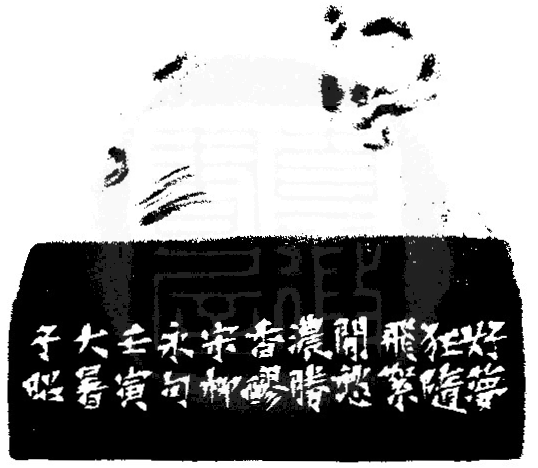 好夢
狂隨
飛絮
閒愁
濃勝
香醪
宋柳
永句
壬寅
大暑
子